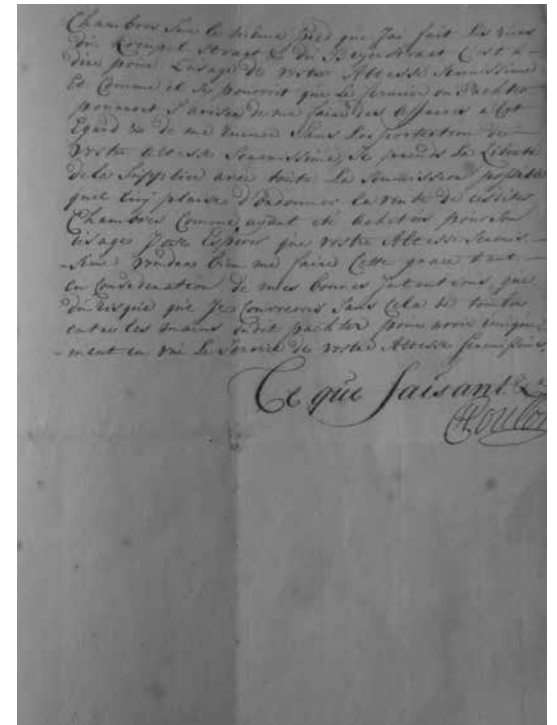 Chambres sur le même pied que J'ai fait les vins
du Crompel Straet & du Beyerstraet C'est à
dire pour L'usage de vostre Altesse Serenissime
Et Comme il se pourroit que le fermier ou Pachter
pourroit s'aviser de me faire des affaires a Cet
Egard & de me ruiner Sans La protection de
Vostre Altesse Serenissime, Je prends La Liberté
de la Supplier avec toute La Soumission possible
qu'il luy plaise d'ordonner la vente de cesdites
Chambres Comme ayant eté achetées pour Son
Usage, J'ose Esperer que vostre Altesse Serenis-
-sime voudra bien me faire Cette grace tant
en Consideration de mes bonnes Intentions que
du risque que Je Courrerois Sans cela de tomber
entre les mains dudit pachter pour avoir unique-
-ment en vue Le Service de vostre Altesse Serenissime,
Ce que faisant &